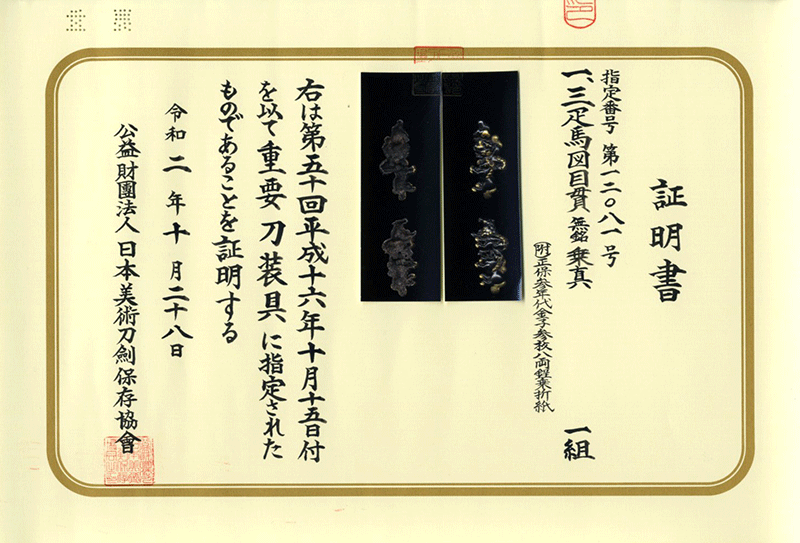 証明書
指定番号 第一二〇八一号
一、三疋馬図目貫 無銘 乗真 一組
附正保参年代金子参枚八両程乗折紙
右は第五十回平成十六年十月十五日付
を以て重要刀装具に指定された
ものであることを証明する
令和二年十月二十八日
公益財團法人日本美術刀劍保存協會